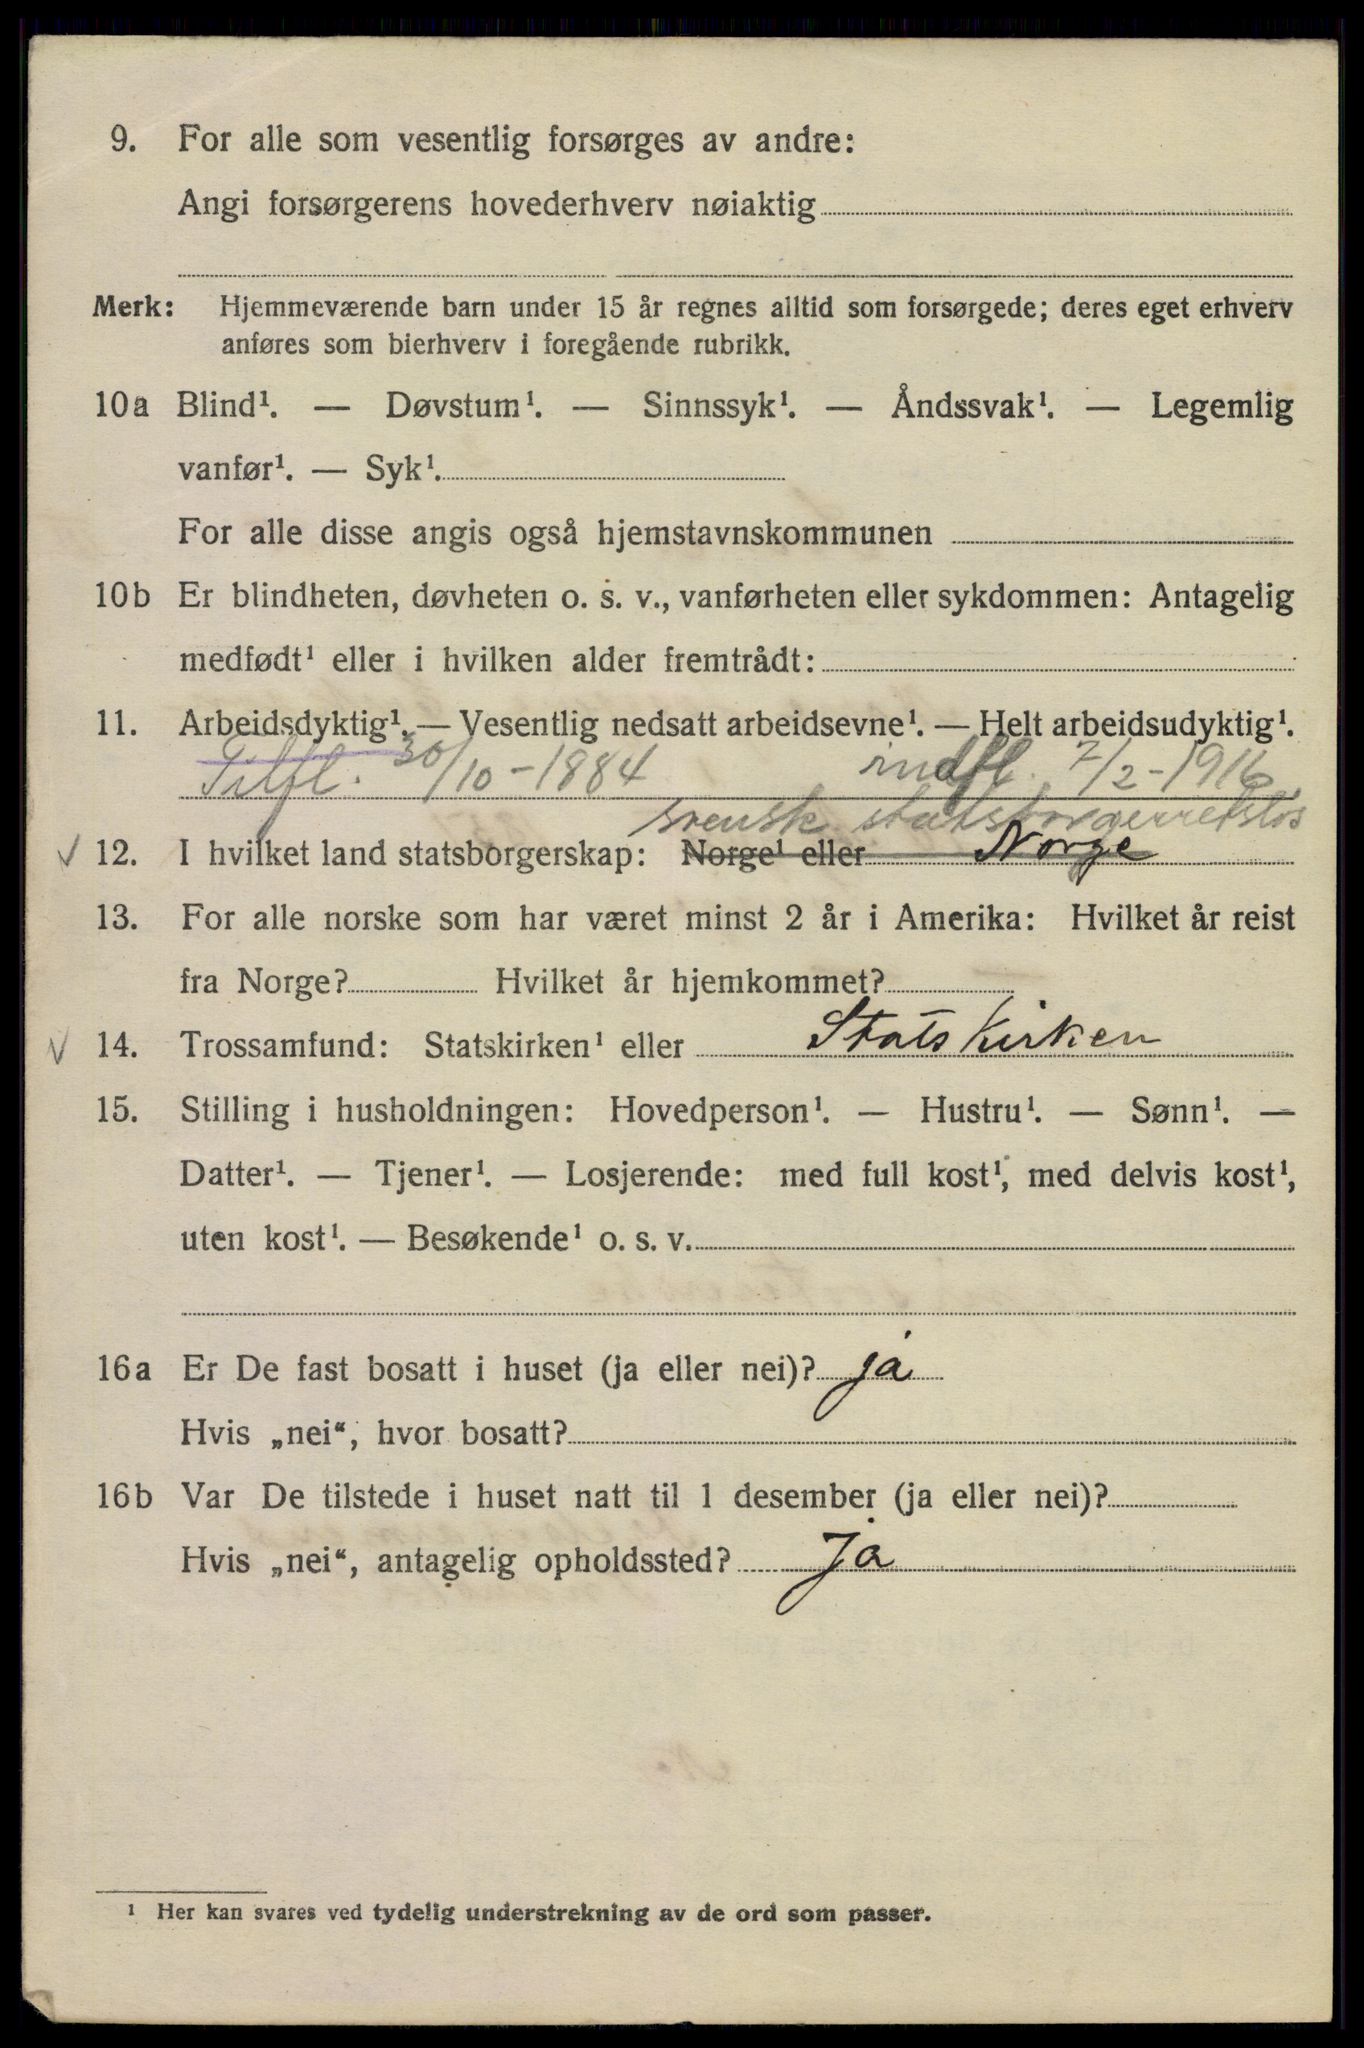 9. For alle som vesentlig forsørges av andre:
Angi forsørgerens hovederhverv nøiaktig
Merk: Hjemmeværende barn under 15 år regnes alltid som forsørgede; deres eget erhverv
anføres som bierhverv i foregående rubrikk.
10a Blind¹. — Døvstum¹. — Sinnssyk¹. — Åndssvak¹. — Legemlig
vanfør¹. — Syk¹.
For alle disse angis også hjemstavnskommunen
10b Er blindheten, døvheten o. s. v., vanførheten eller sykdommen: Antagelig
medfødt¹ eller i hvilken alder fremtrådt:
11. Arbeidsdyktig¹. — Vesentlig nedsatt arbeidsevne¹. — Helt arbeidsudyktig¹.
Tilfl. 30/10-1884 indfl. 7/2-1916
svensk statsborgerretsløs
12. I hvilket land statsborgerskap: Norge¹ eller Norge
13. For alle norske som har været minst 2 år i Amerika: Hvilket år reist
fra Norge? Hvilket år hjemkommet?
14. Trossamfund: Statskirken¹ eller Statskirken
15. Stilling i husholdningen: Hovedperson¹. — Hustru¹. — Sønn¹. —
Datter¹. — Tjener¹. — Losjerende: med full kost¹, med delvis kost¹,
uten kost¹. — Besøkende¹ o. s. v.
16a Er De fast bosatt i huset (ja eller nei)? ja
Hvis „nei“, hvor bosatt?
16b Var De tilstede i huset natt til 1 desember (ja eller nei)?
Hvis „nei“, antagelig opholdssted? Ja
¹ Her kan svares ved tydelig understrekning av de ord som passer.